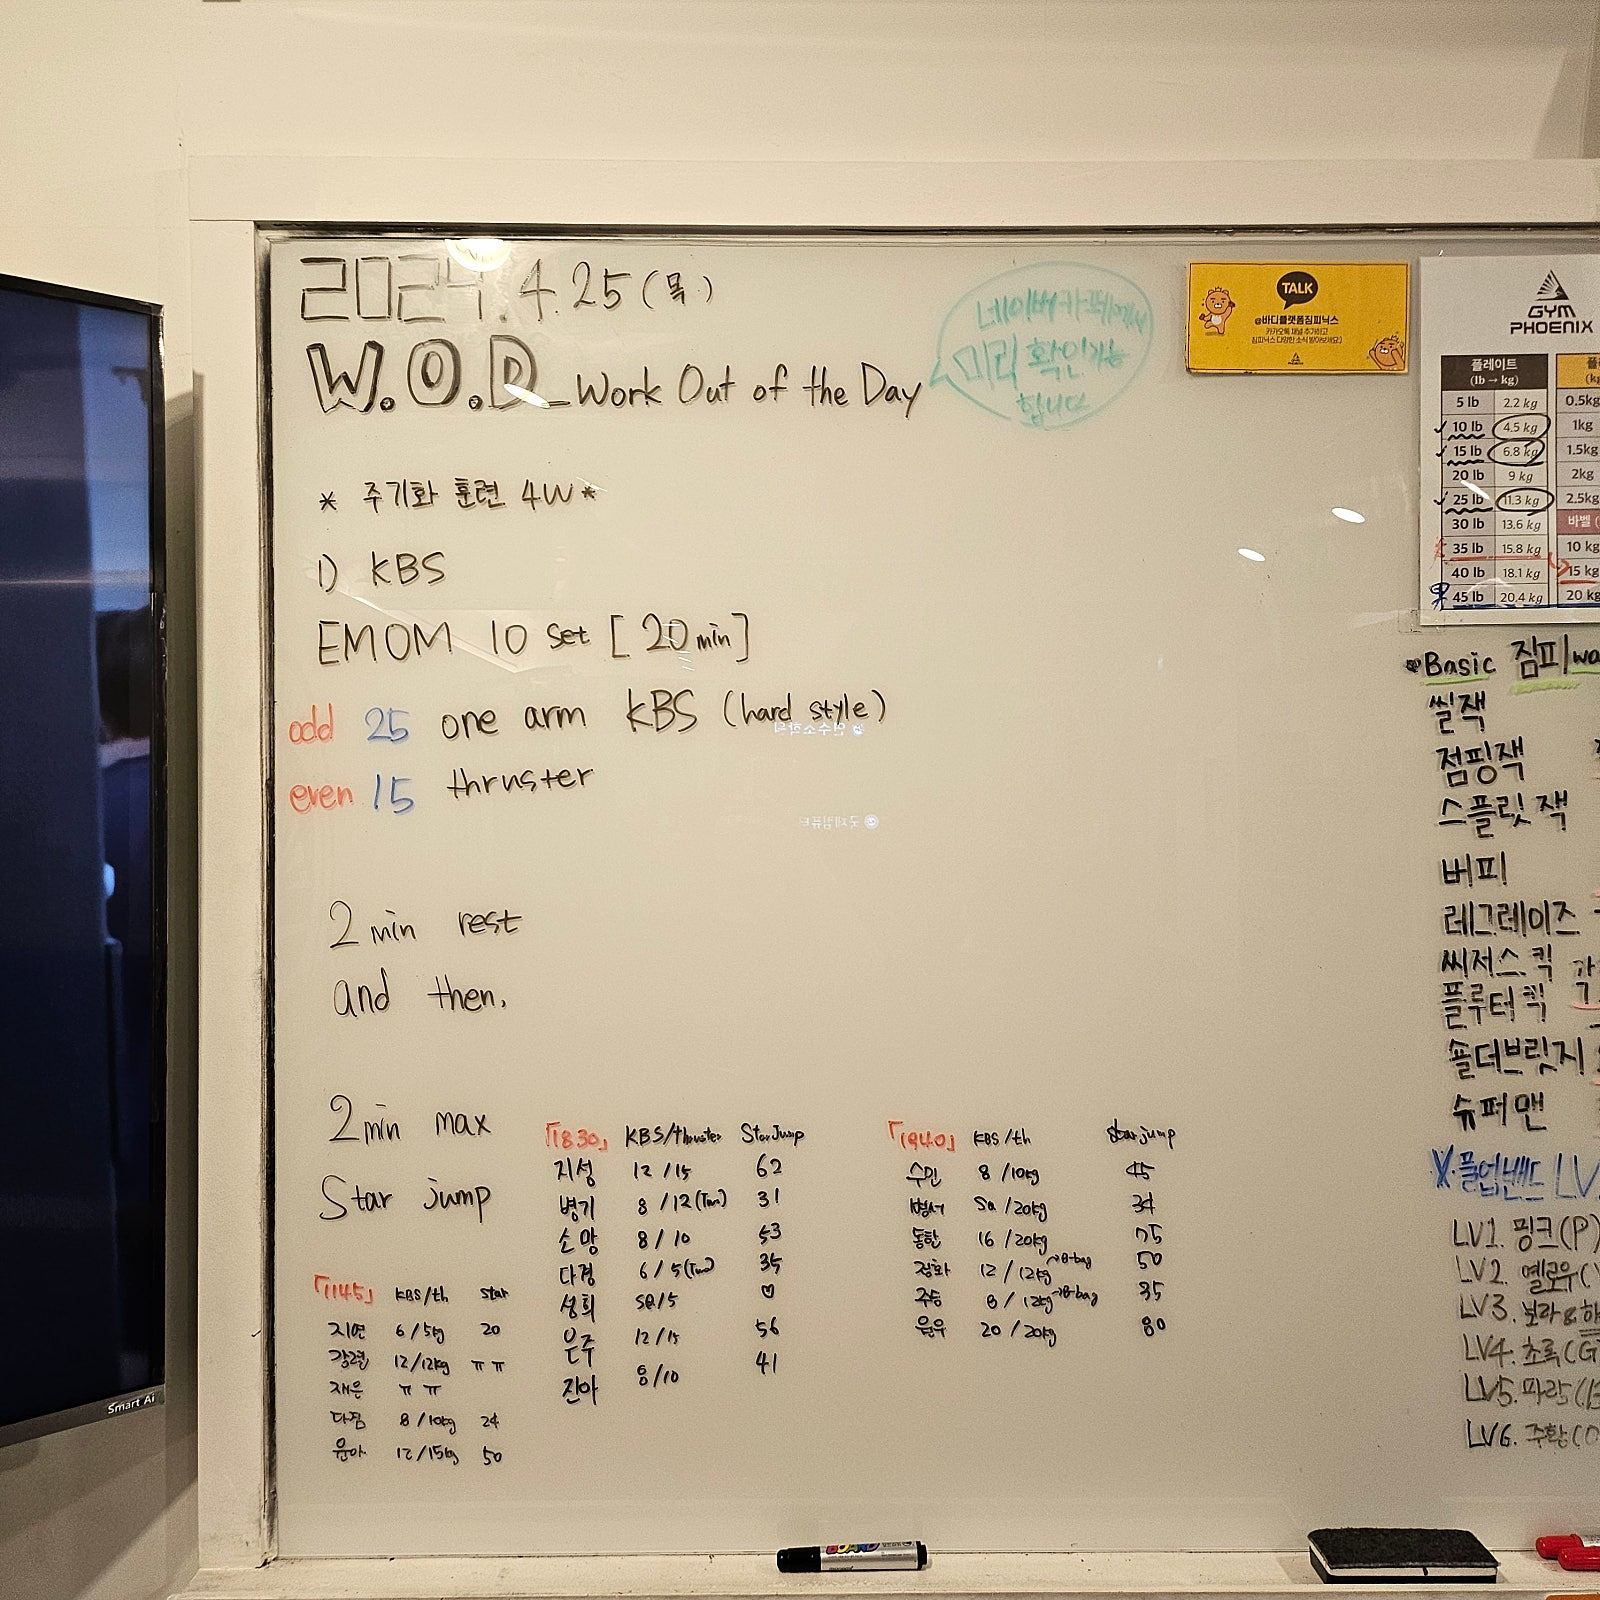 2024. 4. 25 (목)
W.O.D_Work Out of the Day
네이버카페에서
미리 확인가능
합니다
* 주기화 훈련 4W *
1) KBS
EMOM 10 set [20min]
odd 25 one arm KBS (hard style)
even 15 thruster
2 min rest
and then,
2min max
Star jump
「1145」 KBS/th star
지연 6/5kg 20
12/12kg ㅠㅠ
재은 ㅠㅠ
다정 8/10kg 24
윤아 12/15kg 50
「1830」 KBS/thruster Star Jump
지성 12/15 62
병기 8/12 31
소망 8/10 53
다경 6/5 35
성희 SQ/5 ♡
은주 12/15 56
진아 8/10 41
「1940」 KBS/th Star jump
수민 8/10kg 45
병서 /20kg 34
동한 16/20kg 75
정화 12/12kg→B-bag 50
8/12kg→B-bag 35
윤우 20/20kg 80
TALK
@바디플랫폼짐피닉스
카카오톡 채널 추가하고
짐피닉스 다양한 소식 받아보세요:)
GYM
PHOENIX
플레이트
(lb → kg)
5 lb 2.2 kg 0.5kg
10 lb 4.5 kg 1kg
15 lb 6.8 kg 1.5kg
20 lb 9 kg 2kg
25 lb 11.3 kg 2.5kg
30 lb 13.6 kg 바벨
35 lb 15.8 kg 10 kg
40 lb 18.1 kg 15 kg
45 lb 20.4 kg 20 kg
Basic 짐피
씰잭
점핑잭
스플릿 잭
버피
레그레이즈
씨저스 킥
플루터 킥
숄더브릿지
슈퍼맨
풀업밴드 LV.
LV1. 핑크(P)
LV2. 옐로우(
LV3. 보라&
LV4. 초록(G
LV5. 파랑(
LV6. 주황(O
Smart Ai
BOARD